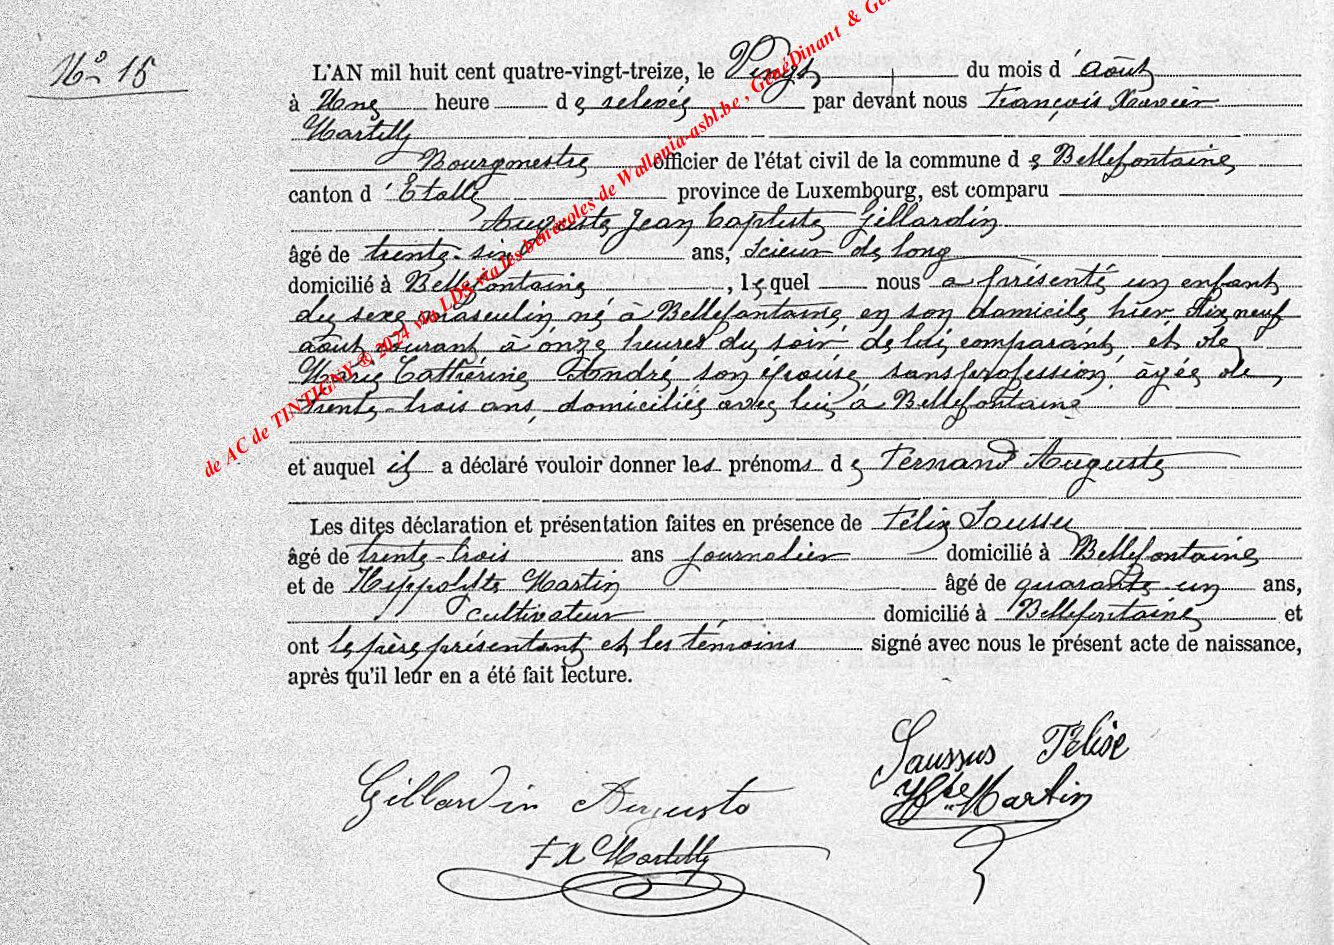 N° 15
L'AN mil huit cent quatre-vingt-treize, le Vingt du mois d'août
à Une heure de relevée par devant nous François Xavier
Martilly
Bourgmestre officier de l'état civil de la commune de Bellefontaine
canton d'Etalle province de Luxembourg, est comparu
Auguste Jean baptiste Gillardin
âgé de trente-six ans, scieur de long
domicilié à Bellefontaine, lequel nous a présenté un enfant
du sexe masculin né à Bellefontaine en son domicile hier dix neuf
août courant à onze heures du soir de lui comparant et de
Marie Cathérine André, son épouse, sans profession, âgée de
trente-trois ans, domiciliée avec lui à Bellefontaine
et auquel il a déclaré vouloir donner les prénoms de Fernand Auguste
Les dites déclaration et présentation faites en présence de Félix Saussus
âgé de trente-trois ans journalier domicilié à Bellefontaine
et de Hyppolyte Martin âgé de quarante un ans,
cultivateur domicilié à Bellefontaine et
ont le père présentant et les témoins signé avec nous le présent acte de naissance,
après qu'il leur en a été fait lecture.
Saussus Félix
Gillardin Auguste
Hte Martin
F X Martilly
de AC de TINTIGNY @ 2024 via LDS via les bénévoles de Wallonia-asbl.be, GénéDinant &